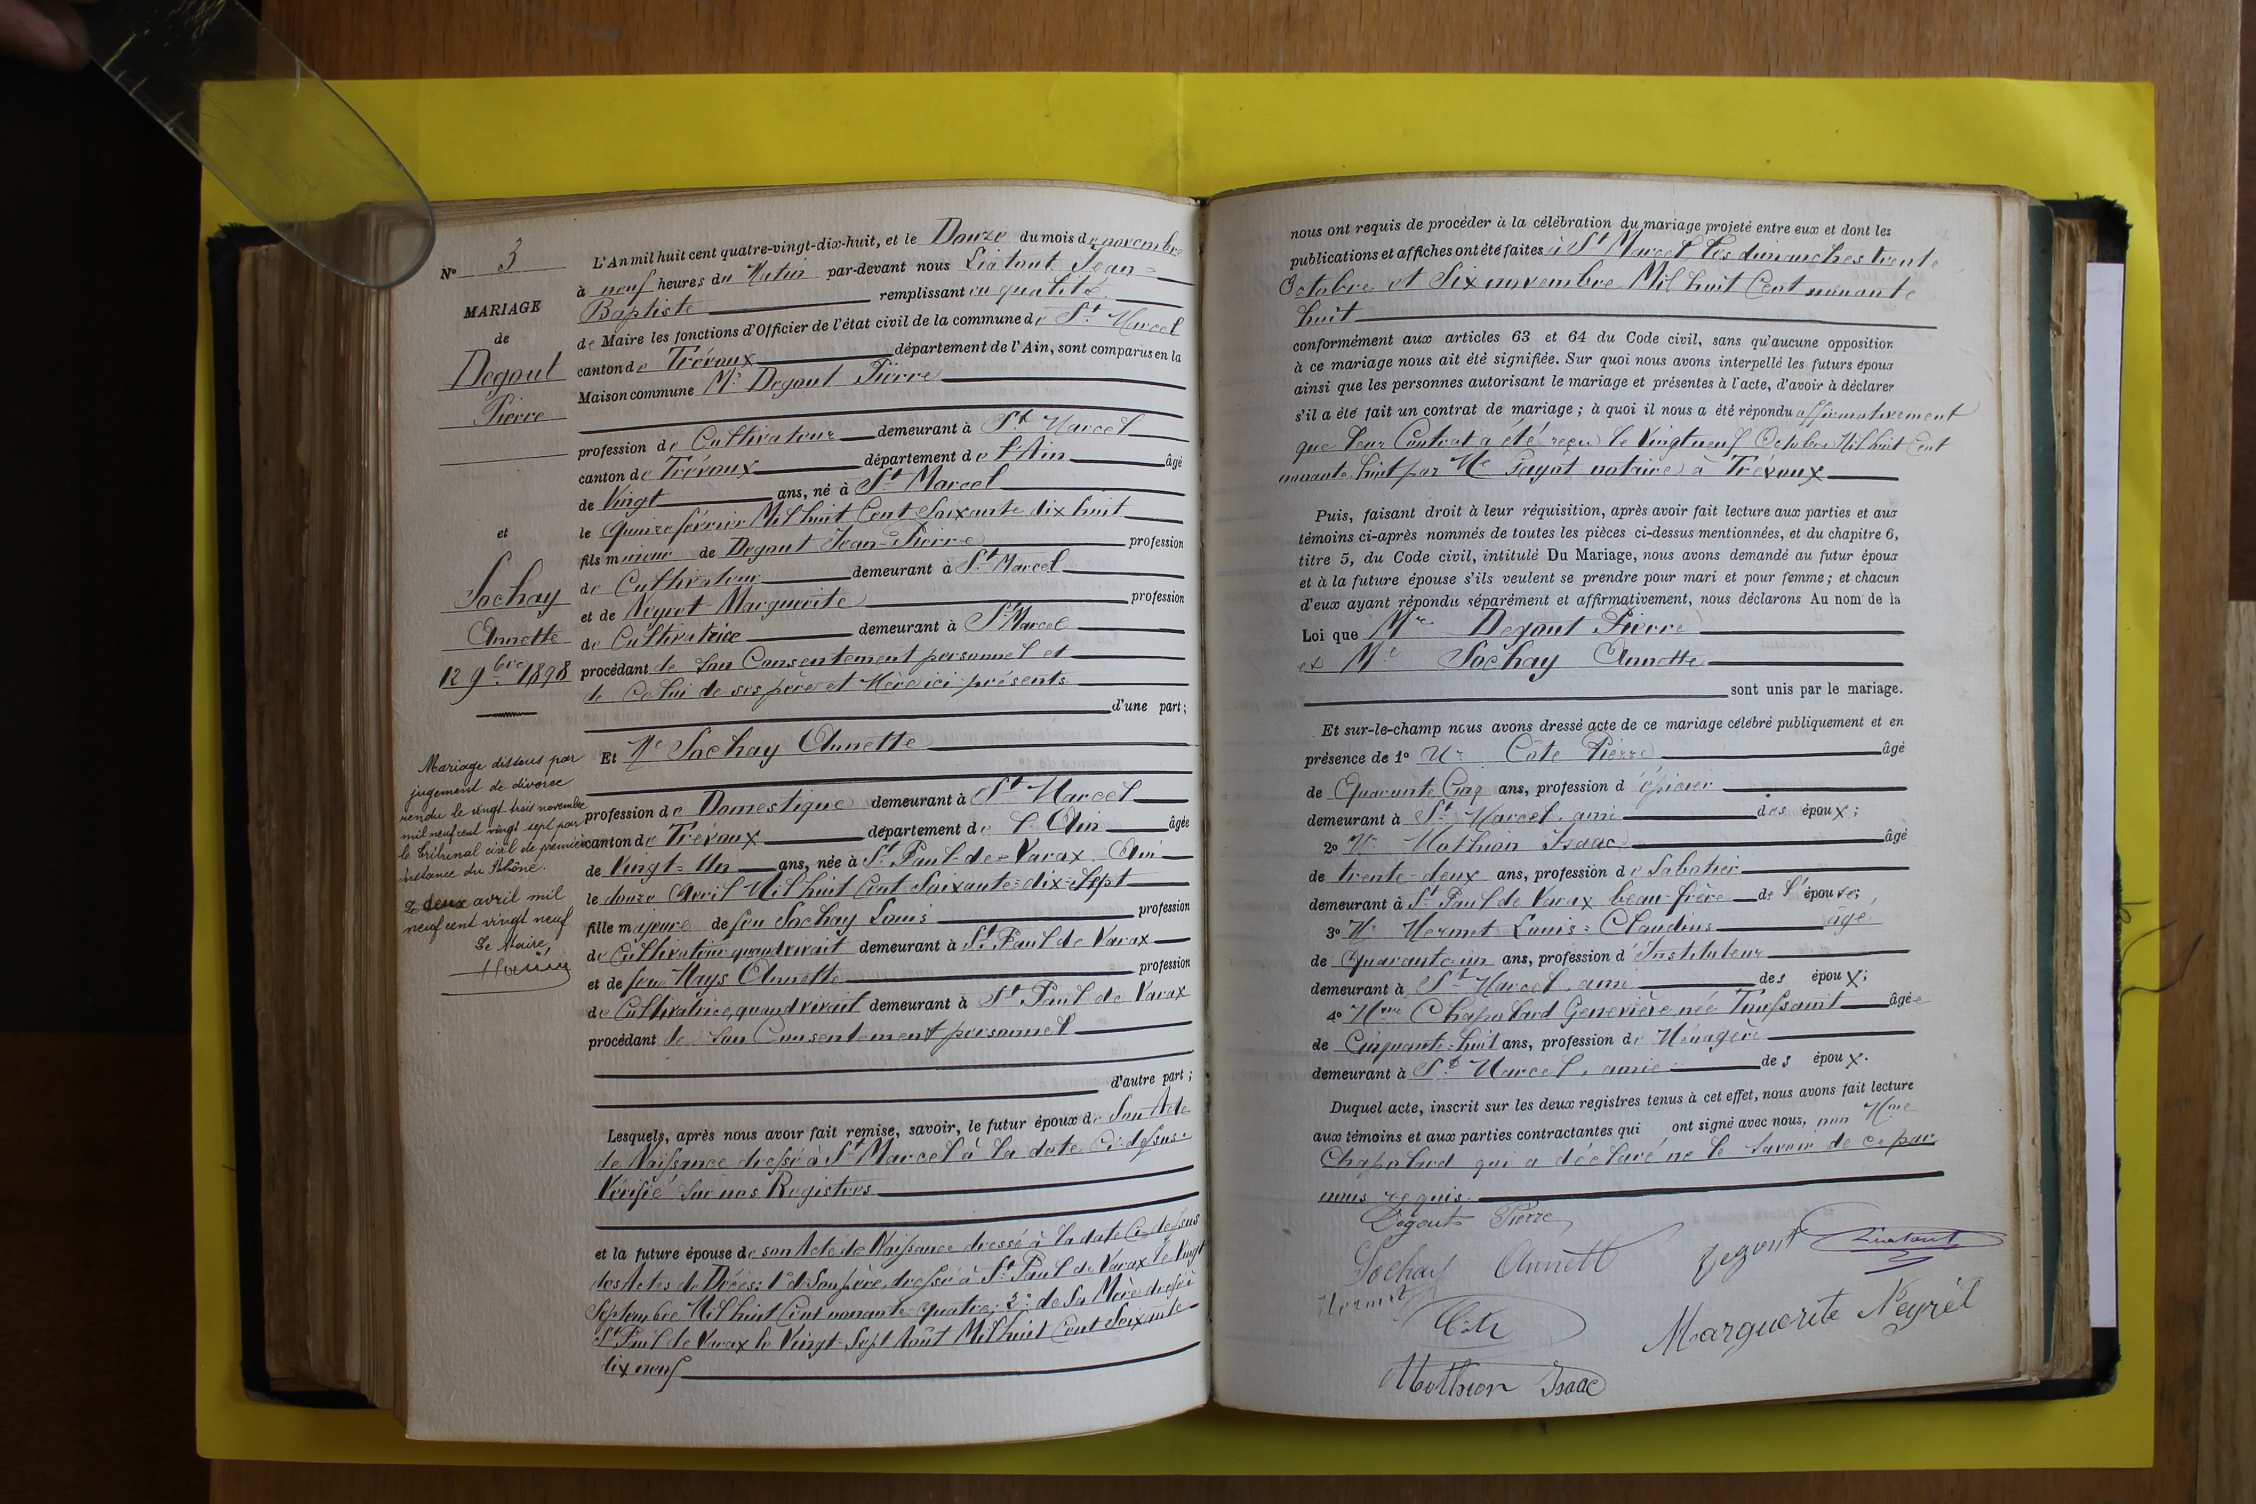 N° 3
MARIAGE
de
Degout
Pierre
et
Sochay
Annette
12 9bre 1898
Mariage dissous par
jugement de divorce
rendu le vingt trois novembre
mil neuf cent vingt sept par
le tribunal civil de première
instance du Rhône.
2 deux avril mil
neuf cent vingt neuf
Le Maire,
L'An mil huit cent quatre-vingt-dix-huit, et le Douze du mois de novembre
à neuf heures du Matin par-devant nous Liatout Jean=
Baptiste remplissant en qualité
de Maire les fonctions d'Officier de l'état civil de la commune de St. Marcel
canton de Trévoux département de l'Ain, sont comparus en la
Maison commune Mr Degout Pierre
profession de Cultivateur demeurant à St. Marcel
canton de Trévoux département de l'Ain âgé
de Vingt ans, né à St. Marcel
le Quinze février Mil huit Cent Soixante dix huit
fils mineur de Degout Jean-Pierre profession
de Cultivateur demeurant à St. Marcel
et de Neyret Marguerite profession
de Cultivatrice demeurant à St. Marcel
procédant de son Consentement personnel et
de Celui de ses père et Mère ici présents
d'une part;
Et Me Sochay Annette
profession de Domestique demeurant à St. Marcel
canton de Trévoux département de l'Ain âgée
de Vingt-Un ans, née à St. Paul-de-Varax Ain
le douze Avril Mil huit Cent Soixante=dix=Sept
fille majeure de feu Sochay Louis profession
de Cultivateur quand vivait demeurant à St. Paul de Varax
et de feu Mays Annette profession
de Cultivatrice, quand vivait demeurant à St. Paul de Varax
procédant de son Consentement personnel
d'autre part;
Lesquels, après nous avoir fait remise, savoir, le futur époux de Son Acte
de Naissance dressé à St. Marcel à la date Ci-dessus.
Vérifié sur nos Registres
et la future épouse de son Acte de Naissance dressé à la date Ci-dessus
des Actes de Décès: 1° de Son père, dressé à St. Paul de Varax le Vingt
Septembre Mil huit Cent nonante-quatre; 2° de Sa Mère dressé
St. Paul de Varax le Vingt-Sept Août Mil huit Cent Soixante
dix neuf
nous ont requis de procéder à la célébration du mariage projeté entre eux et dont les
publications et affiches ont été faites à St. Marcel les dimanches trente
Octobre et Six novembre Mil huit Cent nonante
huit
conformément aux articles 63 et 64 du Code civil, sans qu'aucune opposition
à ce mariage nous ait été signifiée. Sur quoi nous avons interpellé les futurs époux
ainsi que les personnes autorisant le mariage et présentes à l'acte, d'avoir à déclarer
s'il a été fait un contrat de mariage; à quoi il nous a été répondu affirmativement
que leur Contrat a été reçu le Vingt neuf Octobre Mil huit Cent
nonante huit par Me Payot notaire à Trévoux
Puis, faisant droit à leur réquisition, après avoir fait lecture aux parties et aux
témoins ci-après nommés de toutes les pièces ci-dessus mentionnées, et du chapitre 6,
titre 5, du Code civil, intitulé Du Mariage, nous avons demandé au futur époux
et à la future épouse s'ils veulent se prendre pour mari et pour femme; et chacun
d'eux ayant répondu séparément et affirmativement, nous déclarons Au nom de la
Loi que Mr Degout Pierre
et Me Sochay Annette
sont unis par le mariage.
Et sur-le-champ nous avons dressé acte de ce mariage célébré publiquement et en
présence de 1° Mr Côte Pierre âgé
de Quarante Cinq ans, profession d'épicier
demeurant à St. Marcel, ami des époux;
2° Mr Mathion Isaac âgé
de trente-deux ans, profession de Sabotier
demeurant à St. Paul de Varax beau-frère de l'épouse;
3° Mr Mermet Louis=Claudius âgé
de Quarante-un ans, profession d'Instituteur
demeurant à St. Marcel, ami des époux;
4° Mme Chapolard Geneviève née Toussaint âgée
de Cinquante-huit ans, profession de Ménagère
demeurant à St. Marcel, amie des époux.
Duquel acte, inscrit sur les deux registres tenus à cet effet, nous avons fait lecture
aux témoins et aux parties contractantes qui ont signé avec nous, non Mme
Chapolard qui a déclaré ne le savoir de ce par
nous requis.
Degout Pierre
Sochay Annett Degout Liatout
Mermet
Côte Marguerite Neyrèt
Mathion Isaac